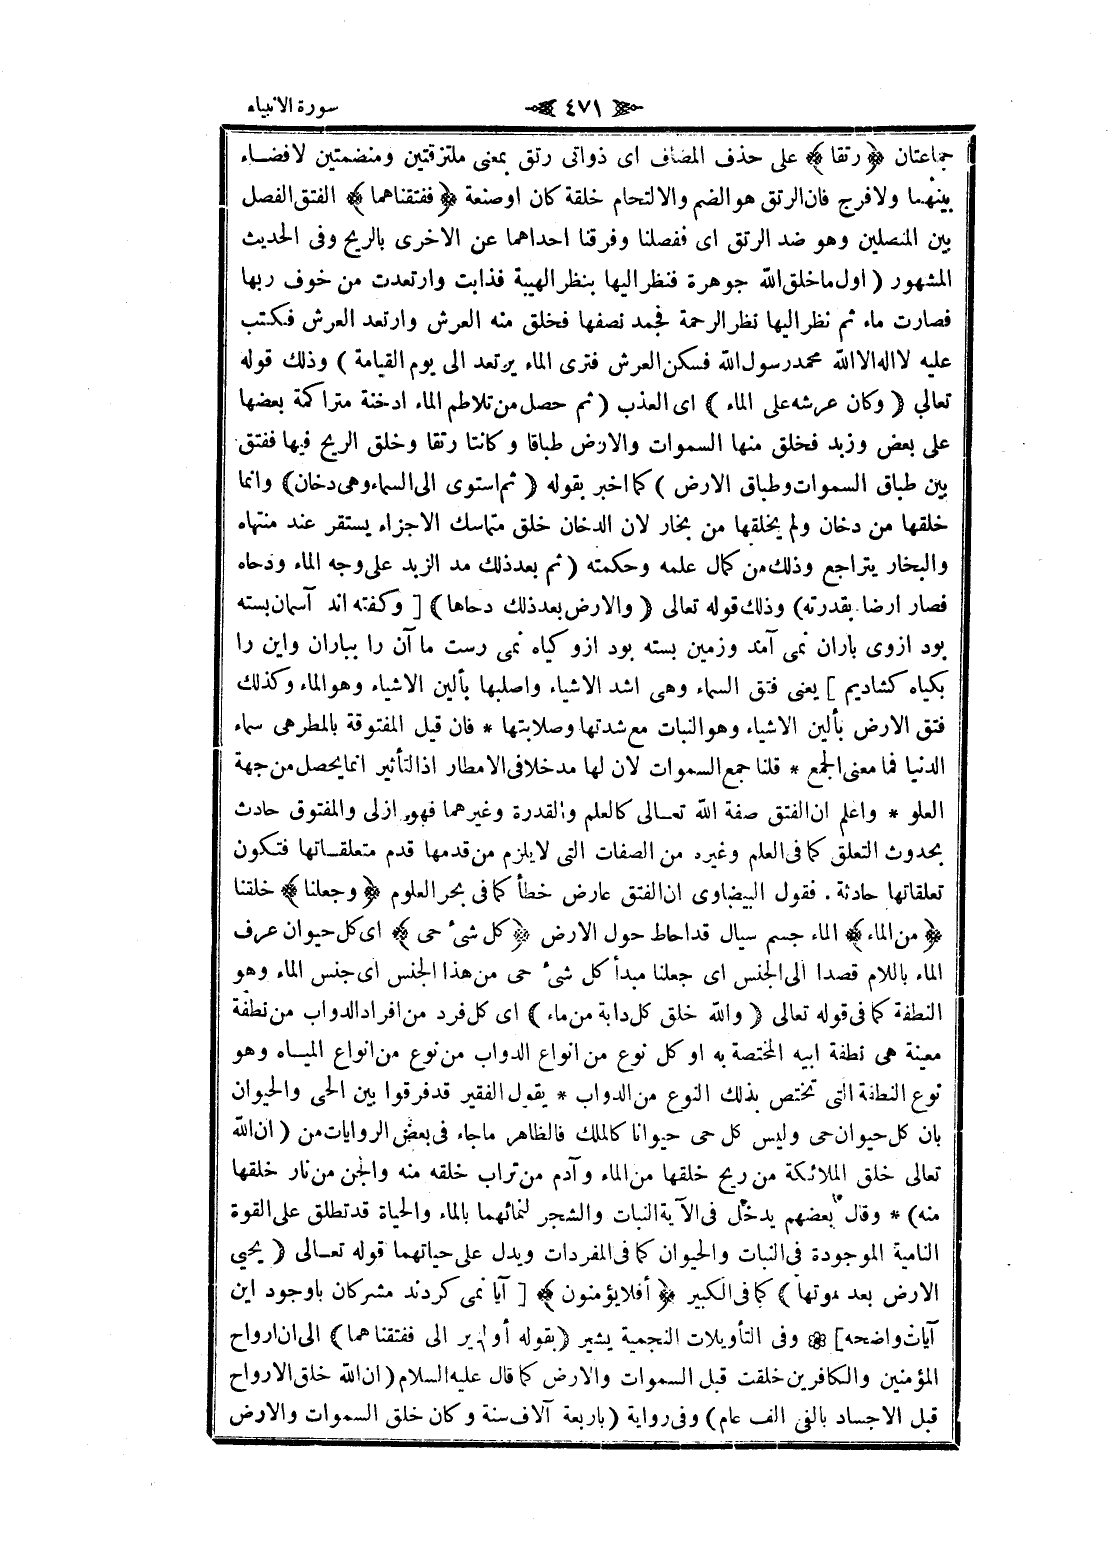 سورة الانبياء ﴿ ٤٧١ ﴾
جماعتان ﴿ رتقا ﴾ على حذف المضاف اى ذواتى رتق بمعنى ملتزقتين ومنضمتين لافضاء
بينهما ولافرج فان الرتق هو الضم والالتحام خلقة كان او صنعة ﴿ ففتقناهما ﴾ الفتق الفصل
بين المنصلين وهو ضد الرتق اى ففصلنا وفرقنا احداهما عن الاخرى بالريح وفى الحديث
المشهور ( اول ما خلق الله جوهرة فنظر اليها بنظر الهيبة فذابت وارتعدت من خوف ربها
فصارت ماء ثم نظر اليها نظر الرحمة فجمد نصفها فخلق منه العرش وارتعد العرش فكتب
عليه لااله الا الله محمد رسول الله فسكن العرش فترى الماء يرتعد الى يوم القيامة ) وذلك قوله
تعالى ( وكان عرشه على الماء ) اى العذب ( ثم حصل من تلاطم الماء ادخنة متراكمة بعضها
على بعض وزبد فخلق منها السموات والارض طباقا وكانتا رتقا وخلق الريح فيها ففتق
بين طباق السموات وطباق الارض ) كما اخبر بقوله ( ثم استوى الى السماء وهى دخان) وانما
خلقها من دخان ولم يخلقها من بخار لان الدخان خلق متماسك الاجزاء يستقر عند منتهاه
والبخار يتراجع وذلك من كمال علمه وحكمته ( ثم بعد ذلك مد الزبد على وجه الماء ودحاه
فصار ارضا بقدرته) وذلك قوله تعالى ( والارض بعد ذلك دحاها ) [ وكفته اند آسمان بسته
بود ازوى باران نمى آمد وزمين بسته بود ازو كياه نمى رست ما آن را بباران واين را
بكياه كشاديم ] يعنى فتق السماء وهى اشد الاشياء واصلبها بألين الاشياء وهو الماء وكذلك
فتق الارض بألين الاشياء وهو النبات مع شدتها وصلابتها * فان قيل المفتوقة بالمطر هى سماء
الدنيا فما معنى الجمع * قلنا جمع السموات لان لها مدخلا فى الامطار اذ التأثير انما يحصل من جهة
العلو * واعلم ان الفتق صفة الله تعالى كالعلم والقدرة وغيرهما فهو ازلى والمفتوق حادث
بحدوث التعلق كما فى العلم وغيره من الصفات التى لايلزم من قدمها قدم متعلقاتها فتكون
تعلقاتها حادثة . فقول البيضاوى ان الفتق عارض خطأ كما فى بحر العلوم ﴿ وجعلنا ﴾ خلقنا
﴿ من الماء ﴾ الماء جسم سيال قد احاط حول الارض ﴿ كل شئ حى ﴾ اى كل حيوان عرف
الماء باللام قصدا الى الجنس اى جعلنا مبدأ كل شئ حى من هذا الجنس اى جنس الماء وهو
النطفة كما فى قوله تعالى ( والله خلق كل دابة من ماء ) اى كل فرد من افراد الدواب من نطفة
معينة هى نطفة ابيه المختصة به او كل نوع من انواع الدواب من نوع من انواع المياه وهو
نوع النطفة التى تختص بذلك النوع من الدواب * يقول الفقير قد فرقوا بين الحى والحيوان
بان كل حيوان حى وليس كل حى حيوانا كالملك فالظاهر ماجاء فى بعض الروايات من ( ان الله
تعالى خلق الملائكة من ريح خلقها من الماء وآدم من تراب خلقه منه والجن من نار خلقها
منه) * وقال بعضهم يدخل فى الآية النبات والشجر لنمائهما بالماء والحياة قد تطلق على القوة
النامية الموجودة فى النبات والحيوان كما فى المفردات ويدل على حياتهما قوله تعالى ( يحيى
الارض بعد موتها ) كما فى الكبير ﴿ أفلا يؤمنون ﴾ [ آيا نمى كردند مشركان باوجود اين
آيات واضحه] ❁ وفى التأويلات النجمية يشير (بقوله أولم ير الى ففتقناهما) الى ان ارواح
المؤمنين والكافرين خلقت قبل السموات والارض كما قال عليه السلام ( ان الله خلق الارواح
قبل الاجساد بالفى الف عام ) وفى رواية ( باربعة آلاف سنة وكان خلق السموات والارض